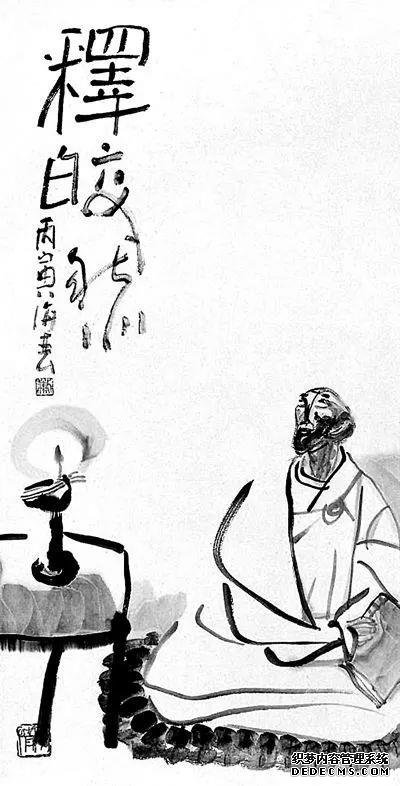 釋
皎然
丙寅
织梦内容管理系统
DEDECMS.COM